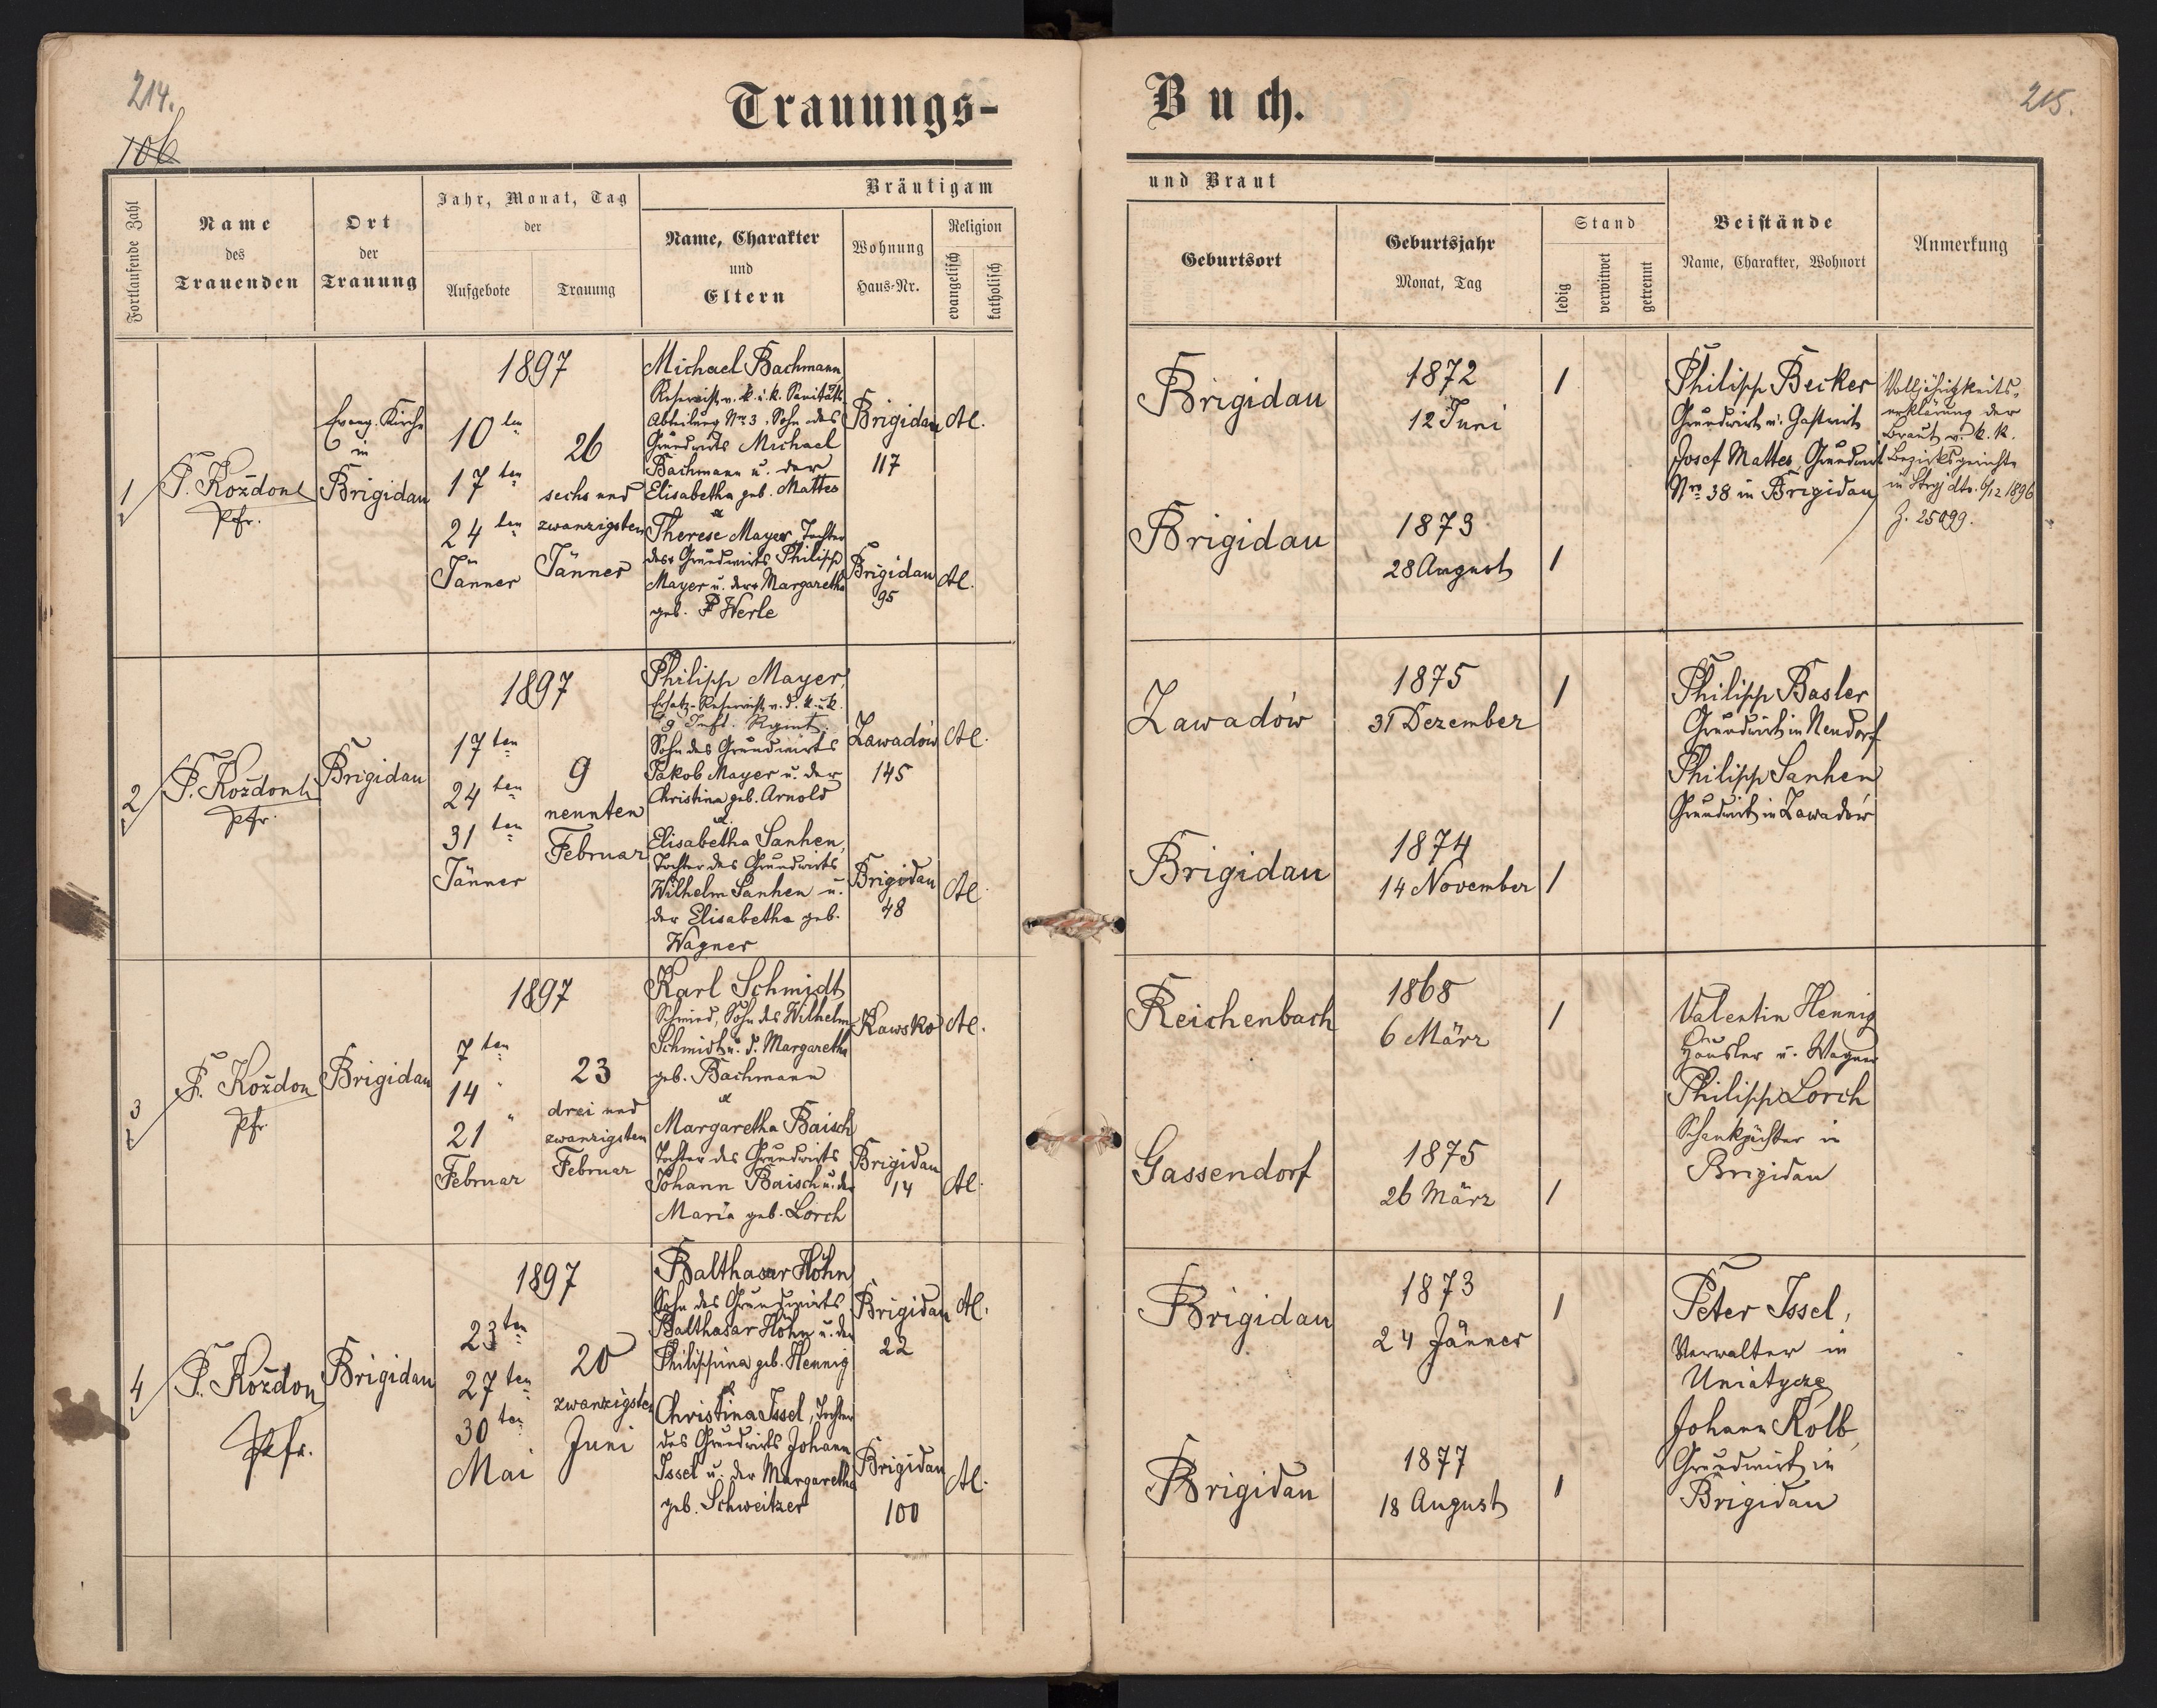 214.
106
Trauungs-
Fortlaufende Zahl
Name
des
Trauenden
Ort
der
Trauung
Jahr, Monat, Tag
der
Aufgebote
Trauung
Bräutigam
Name, Charakter
und
Eltern
Wohnung
Haus-Nr.
Religion
evangelisch
katholisch
1
P. Koždon
Pfr.
Evang. Kirche
in
Brigidau
1897
10ten
17ten
24ten
Jänner
26
sechs und
zwanzigsten
Jänner
Michael Bachmann
Reservist v. k. u. k. Sanitäts
Abteilung Nr. 3, Sohn des
Grundwirts Michael
Bachmann u. der
Elisabetha geb. Mattes
&
Therese Mayer, Tochter
des Grundwirts Philipp
Mayer u. der Margaretha
geb. Werle
Brigidau
117
Brigidau
95
A.
A.
2
P. Koždon
Pfr.
Brigidau
1897
17ten
24ten
31ten
Jänner
9
neunten
Februar
Philipp Mayer,
Ersatz-Reservist v. d. k. u. k.
9 Inft. Regmt.
Sohn des Grundwirts
Jakob Mayer u. der
Christina geb. Arnold
&
Elisabetha Sanhen,
Tochter des Grundwirts
Wilhelm Sanhen u.
der Elisabetha geb.
Wagner
Zawadów
145
Brigidau
48
A.
A.
3
P. Koždon
Pfr.
Brigidau
1897
7ten
14 "
21 "
Februar
23
drei und
zwanzigsten
Februar
Karl Schmidt
Schmied, Sohn des Wilhelm
Schmidt u. d. Margaretha
geb. Bachmann
&
Margaretha Baisch
Tochter des Grundwirts
Johann Baisch u. der
Maria geb. Lorch
Kawsko
Brigidau
14
A.
A.
4
P. Koždon
Pfr.
Brigidau
1897
23ten
27ten
30ten
Mai
20
zwanzigsten
Juni
Balthasar Höhn
Sohn des Grundwirts
Balthasar Höhn u. der
Philippina geb. Hennig
&
Christina Issel, Tochter
des Grundwirts Johann
Issel u. der Margaretha
geb. Schweitzer
Brigidau
22
Brigidau
100
A.
A.
Buch.
215.
und Braut
Geburtsort
Geburtsjahr
Monat, Tag
Stand
ledig
verwitwet
getrennt
Beistände
Name, Charakter, Wohnort
Anmerkung
Brigidau
1872
12 Juni
1
Brigidau
1873
28 August
1
Philipp Becker
Grundwirt u. Gastwirt
Josef Mattes, Grundwirt
Nro 38 in Brigidau
Volljährigkeits-
erklärung der
Braut v. k. k.
Bezirksgerichte
in Stryj dto. 6/12 1896
Z. 25099.
Zawadów
1875
31 Dezember
1
Brigidau
1874
14 November
1
Philipp Basler
Grundwirt in Neudorf
Philipp Sanhen
Grundwirt in Zawadów
Reichenbach
1868
6 März
1
Gassendorf
1875
26 März
1
Valentin Hennig
Häusler u. Wagner
Philipp Lorch
Schankpächter in
Brigidau
Brigidau
1873
24 Jänner
1
Brigidau
1877
18 August
1
Peter Issel,
Verwalter in
Uniatycze
Johann Kolb,
Grundwirt in
Brigidau